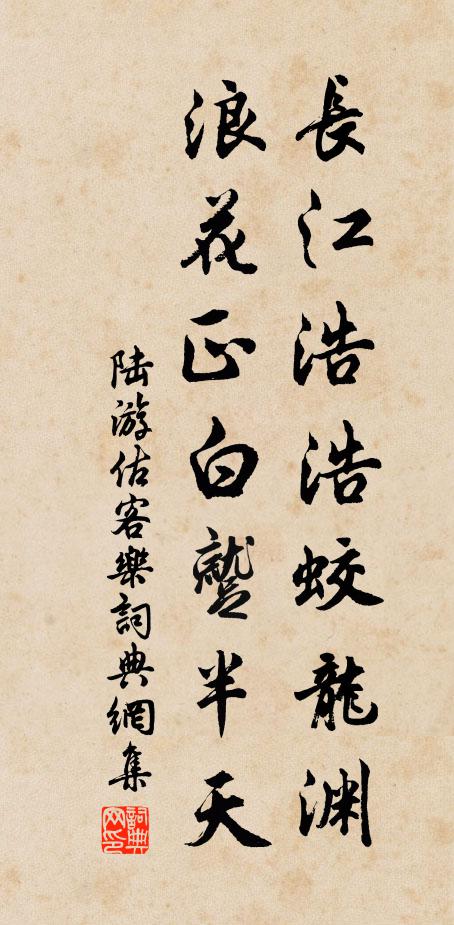 長江浩浩蛟龍淵
浪花正白蹵半天
陸游估客樂詞典網集
詞典网印